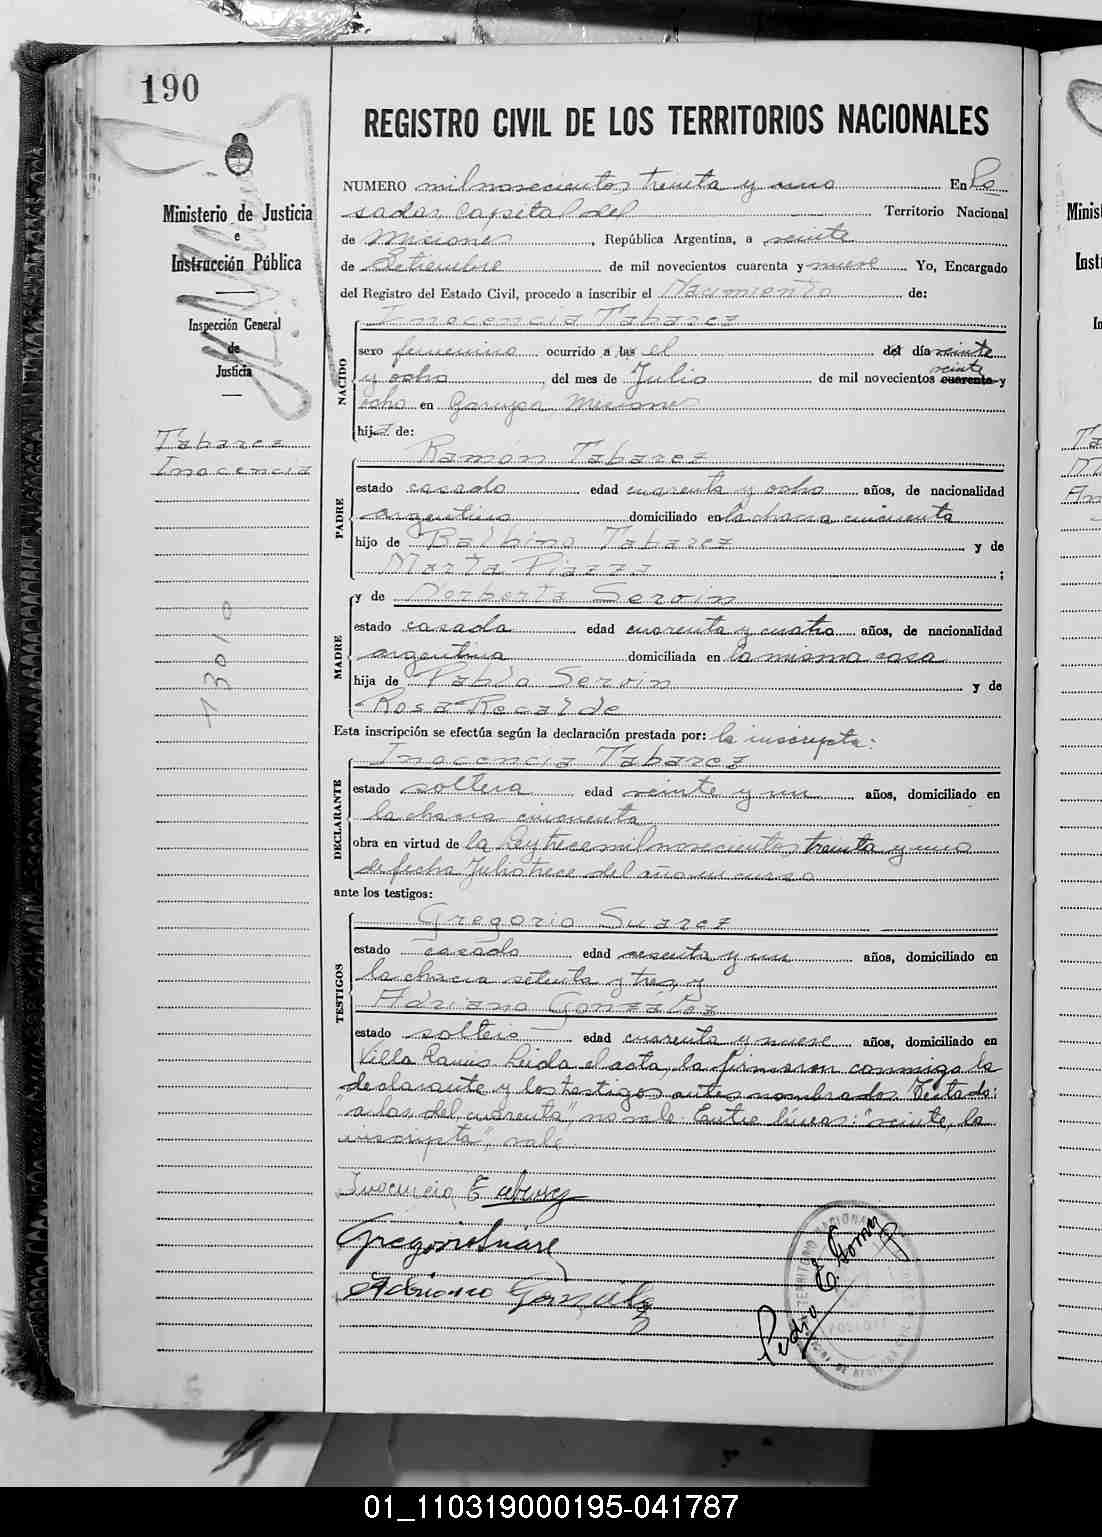 190
REGISTRO CIVIL DE LOS TERRITORIOS NACIONALES
Ministerio de Justicia
e
Instrucción Pública
Inspección General
de
Justicia
Tabarez
Inocencia
13010
NUMERO mil novecientos treinta y uno En Po
sadas Capital del Territorio Nacional
de Misiones, República Argentina, a veinte
de Setiembre de mil novecientos cuarenta y nueve Yo, Encargado
del Registro del Estado Civil, procedo a inscribir el Nacimiento de:
NACIDO
Inocencia Tabarez
sexo femenino ocurrido a las el del día veinte
veinte
y ocho, del mes de Julio de mil novecientos cuarenta y
ocho en Garupa Misiones
hija de:
PADRE
Ramón Tabarez
estado casado edad cuarenta y ocho años, de nacionalidad
argentino domiciliado en la chacra cincuenta
hijo de Balbino Tabarez y de
Marta Piazza;
MADRE
y de Norberta Servin
estado casada edad cuarenta y cuatro años, de nacionalidad
argentina domiciliada en la misma casa
hija de Pablo Servin y de
Rosa Recalde
Esta inscripción se efectúa según la declaración prestada por: la inscripta:
DECLARANTE
Inocencia Tabarez
estado soltera edad veinte y un años, domiciliado en
la chacra cincuenta
obra en virtud de la Ley trece mil novecientos treinta y uno
de fecha Julio trece del año en curso
ante los testigos:
TESTIGOS
Gregorio Suarez
estado casado edad sesenta y un años, domiciliado en
la chacra setenta y tres, y
Adriano González
estado soltero edad cuarenta y nueve años, domiciliado en
Villa Leida el acta, la firmaron conmigo la
declarante y los testigos antes nombrados. Testado:
"a las del cuarenta", no vale. Entre líneas: "veinte, la
inscripta", vale.
Inocencia Tabarez
Gregorio Suarez
Adriano Gonzalez
Pedro E. Gomez
01_110319000195-041787